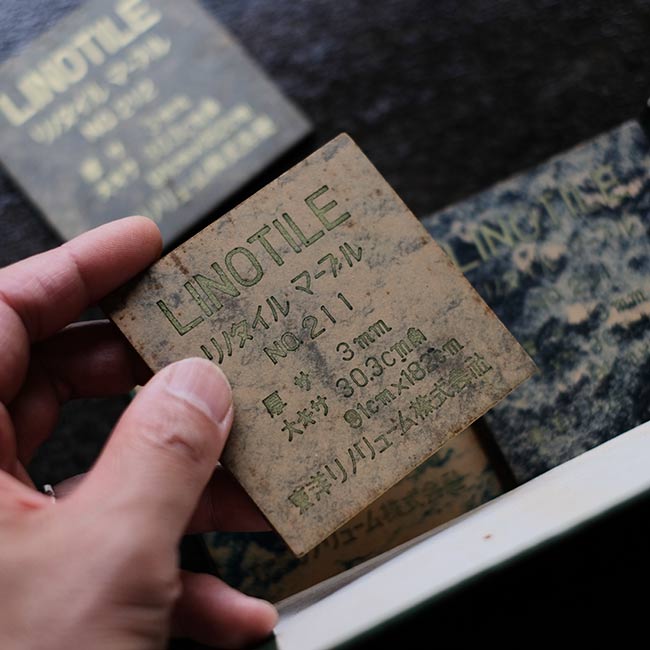 LINOTILE
リノタイル マーブル
NO.212
厚サ 3mm
大キサ
LINOTILE
リノタイル マーブル
NO.211
厚サ 3mm
大キサ 30.3cm角
91cm×182cm
東洋リノリューム株式会社
LINOTILE
リノリューム株式会社